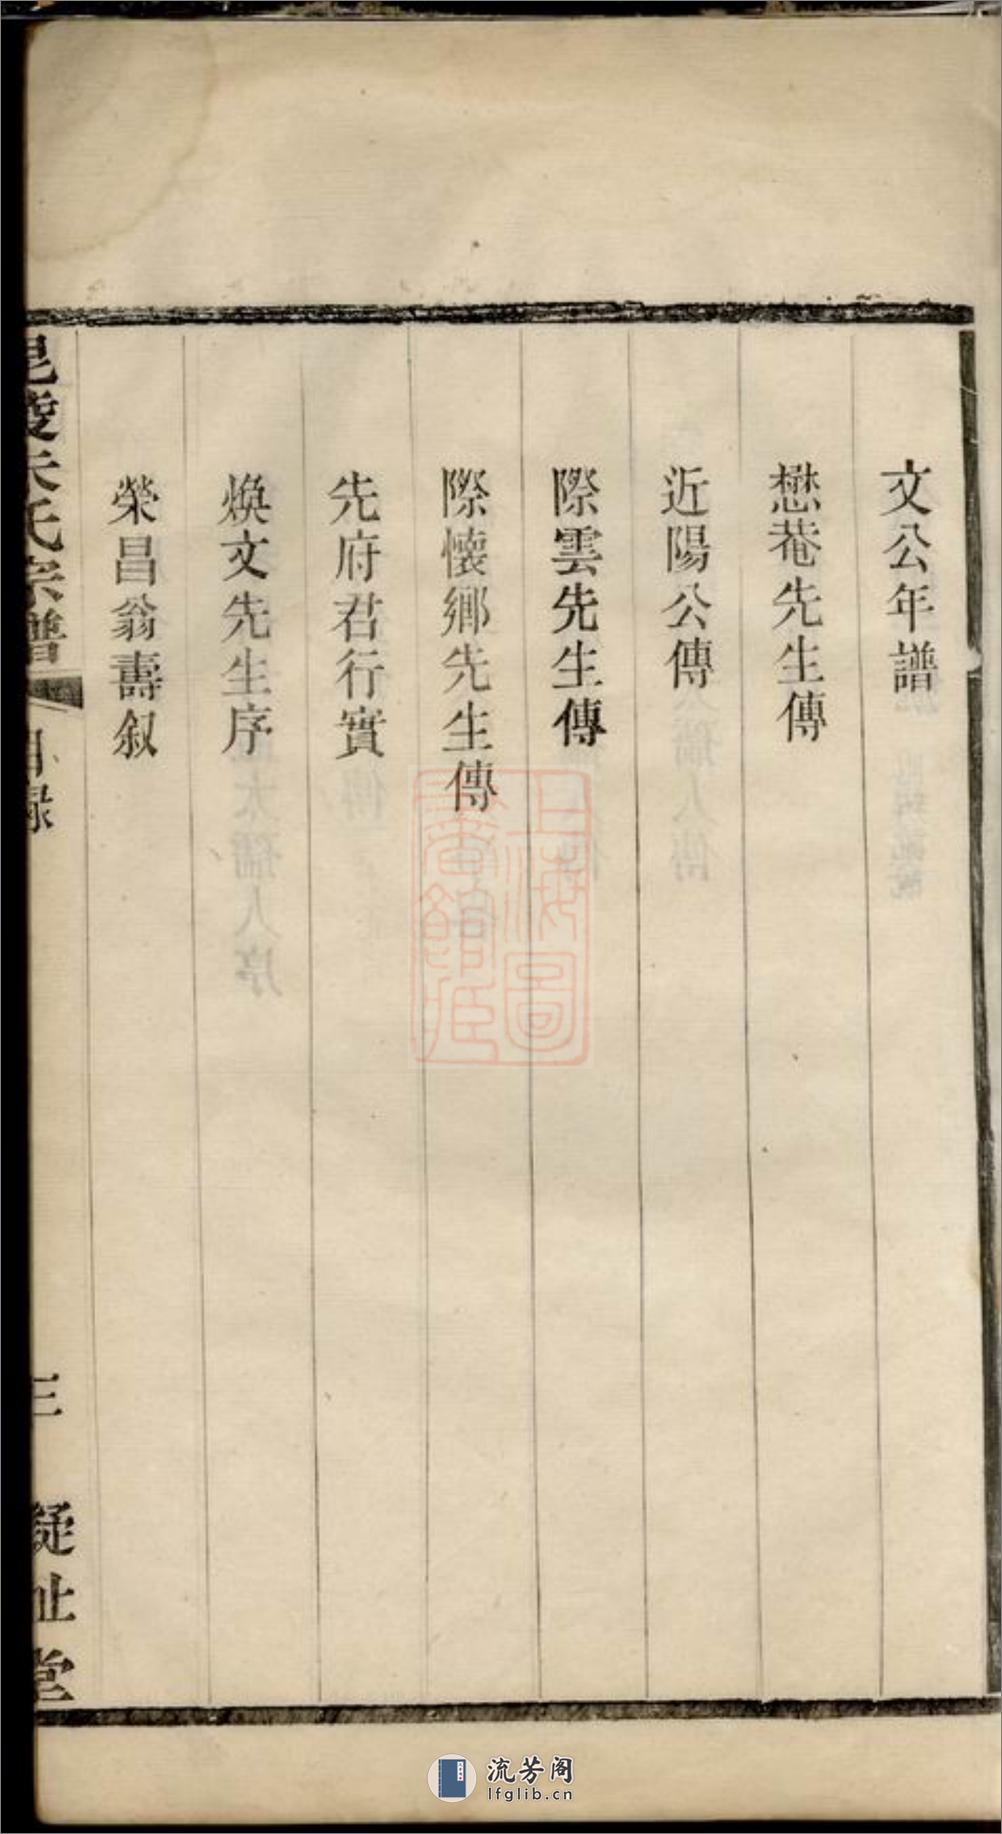 文公年譜
懋菴先生傳
近陽公傳
際雲先生傳
際懷鄉先生傳
先府君行實
煥文先生序
榮昌翁壽叙
毘陵朱氏宗譜
目錄
三
凝祉堂
上海圖
書館藏
流芳阁
lfglib.cn